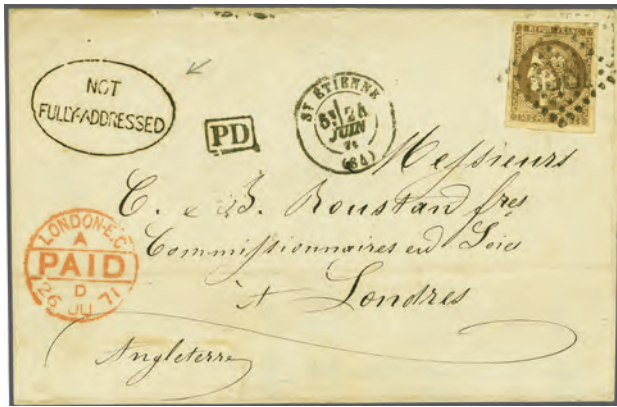 NOT
FULLY-ADDRESSED
PD
ST ETIENNE
5E 24
JUIN
71
(84)
REPUB. FRANC.
Messieurs
C. & B. Roustan frs
Commissionnaires en Soies
à Londres
Angleterre
LONDON-E.C
A
PAID
D
26 JU 71